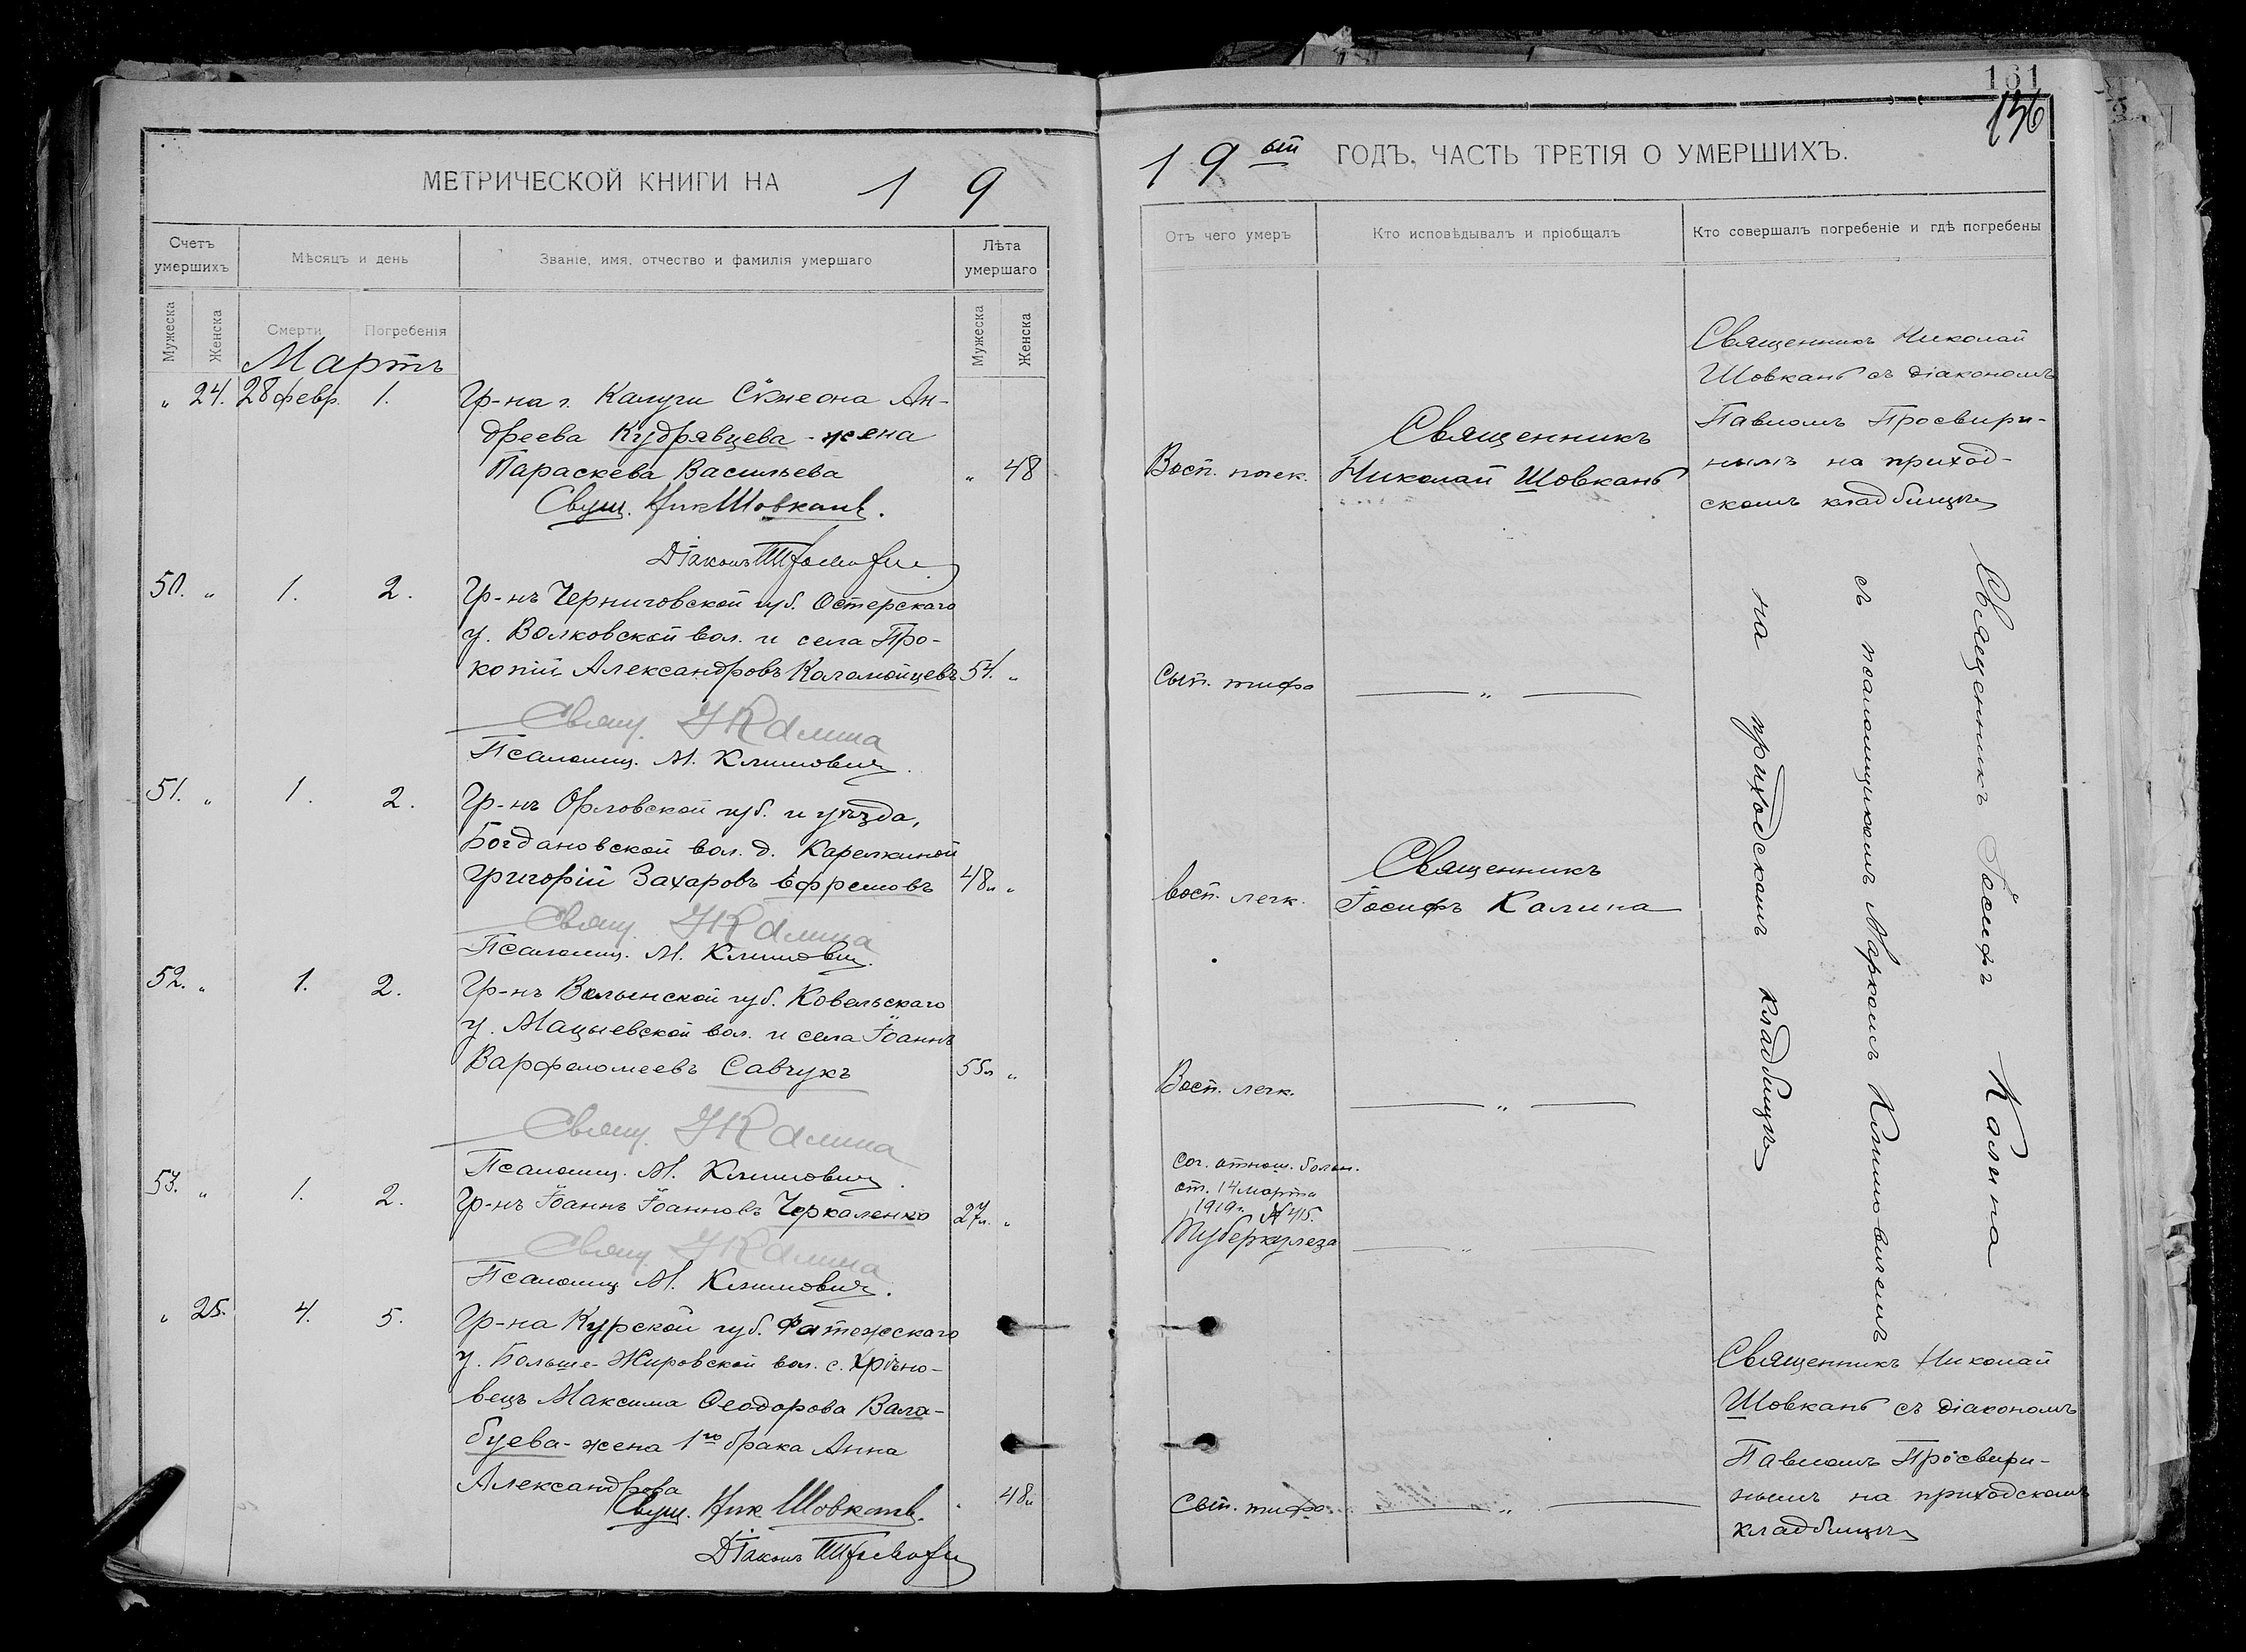 МЕТРИЧЕСКОЙ КНИГИ НА 19
Счетъ умершихъ
Мѣсяцъ и день
Званіе, имя, отчество и фамилія умершаго
Лѣта умершаго
Мужеска
Женска
Смерти
Погребенія
Мужеска
Женска
Мартъ
„ 24. 28 февр. 1. Гр-на г. Калуги Сѵмеона Ан-
дреева Кудрявцева - жена
Параскева Васильева „ 48
Свящ. Ник Шовкань.
Діаконъ
50. „ 1. 2. Гр-нъ Черниговской губ. Остерскаго
у. Волковской вол. и села Про-
копій Александровъ 54. „
Свящ. І Калина
Псаломщ. М. Климович.
51. „ 1. 2. Гр-нъ Орловской губ. и уѣзда,
Богдановской вол. д. Карелкиной
Григорій Захаровъ Ефремовъ 48 л „
Свящ. І Калина
Псаломщ. М. Климович.
52. „ 1. 2. Гр-нъ Волынской губ. Ковельскаго
у. Мацыевской вол. и села Іоаннъ
Варфоломеевъ Савчукъ 55 л „
Свящ. І Калина
Псаломщ. М. Климович.
53. „ 1. 2. Гр-нъ Іоаннъ Іоанновъ Черкаленко 27 л. „
Свящ. І Калина
Псаломщ М. Климович.
„ 25. 4. 5. Гр-на Курской губ. Фатежскаго
у. Больше-Жировской вол. с.
Максима Ѳеодорова Вала-
буева - жена 1го брака Анна
Александрова „ 48 л
Свящ. Ник Шовкань.
Діаконъ
161
136
19 ый ГОДЪ, ЧАСТЬ ТРЕТІЯ О УМЕРШИХЪ.
Отъ чего умеръ
Кто исповѣдывалъ и пріобщалъ
Кто совершалъ погребеніе и гдѣ погребены
Восп. почек.
Священникъ
Николай Шовкань
Священникъ Николай
Шовкань съ діакономъ
Павломъ Просвири-
нымъ на приход-
скомъ кладбищѣ
Сып. тифа — „ —
Восп. легк.
Священникъ
Іосифъ Калина
Восп. легк. — „ —
Сог. отнош. больн.
от. 14 марта
1919 г. № 415.
Туберкулеза — „ —
Священникъ Іосифъ Калина
съ псаломщикомъ Маркомъ Климовичемъ
на приходскомъ кладбищѣ
Сып. тифа — „ —
Священникъ Николай
Шовкань съ діакономъ
Павломъ Просвири-
нымъ на приходскомъ
кладбищѣ